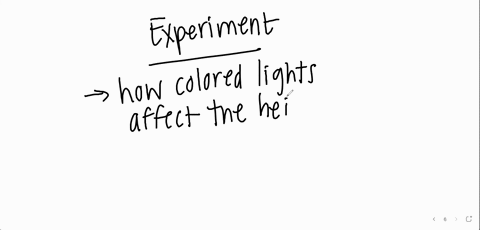 Experiment
→ how colored lights
affect the hei